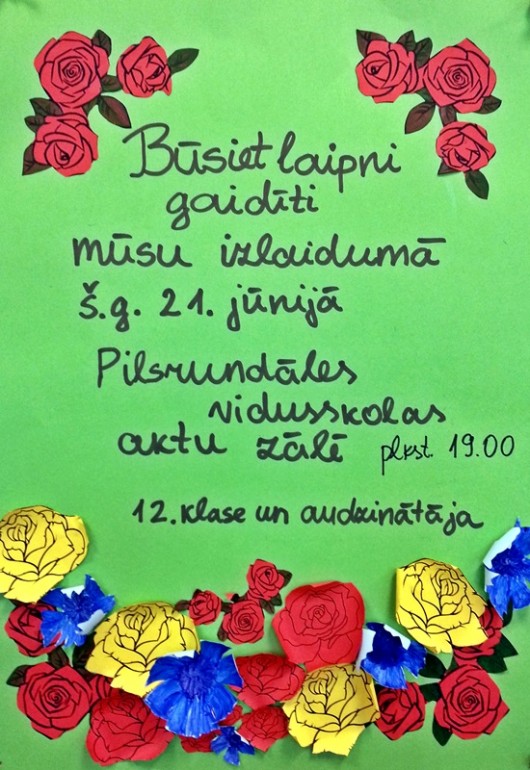 Būsiet laipni
gaidīti
mūsu izlaidumā
š.g. 21. jūnijā
Pilsrundāles
vidusskolas
aktu zālē plkst. 19.00
12. klase un audzinātāja